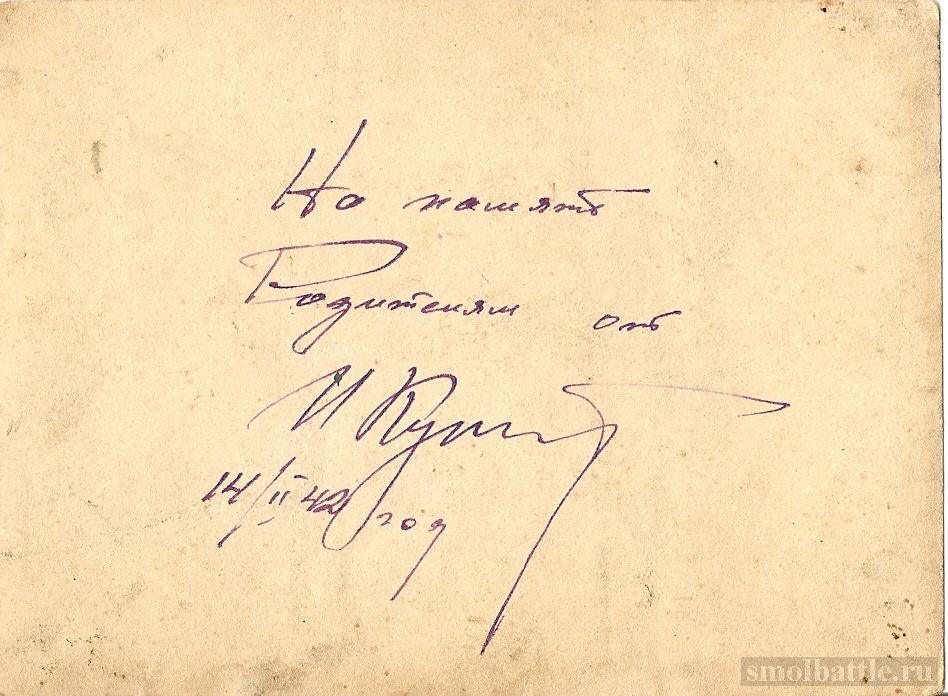 На память
Родителям от
И
14/II 42 год
smolbattle.ru